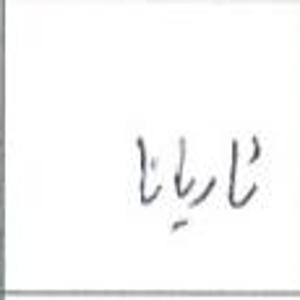 ناریانا